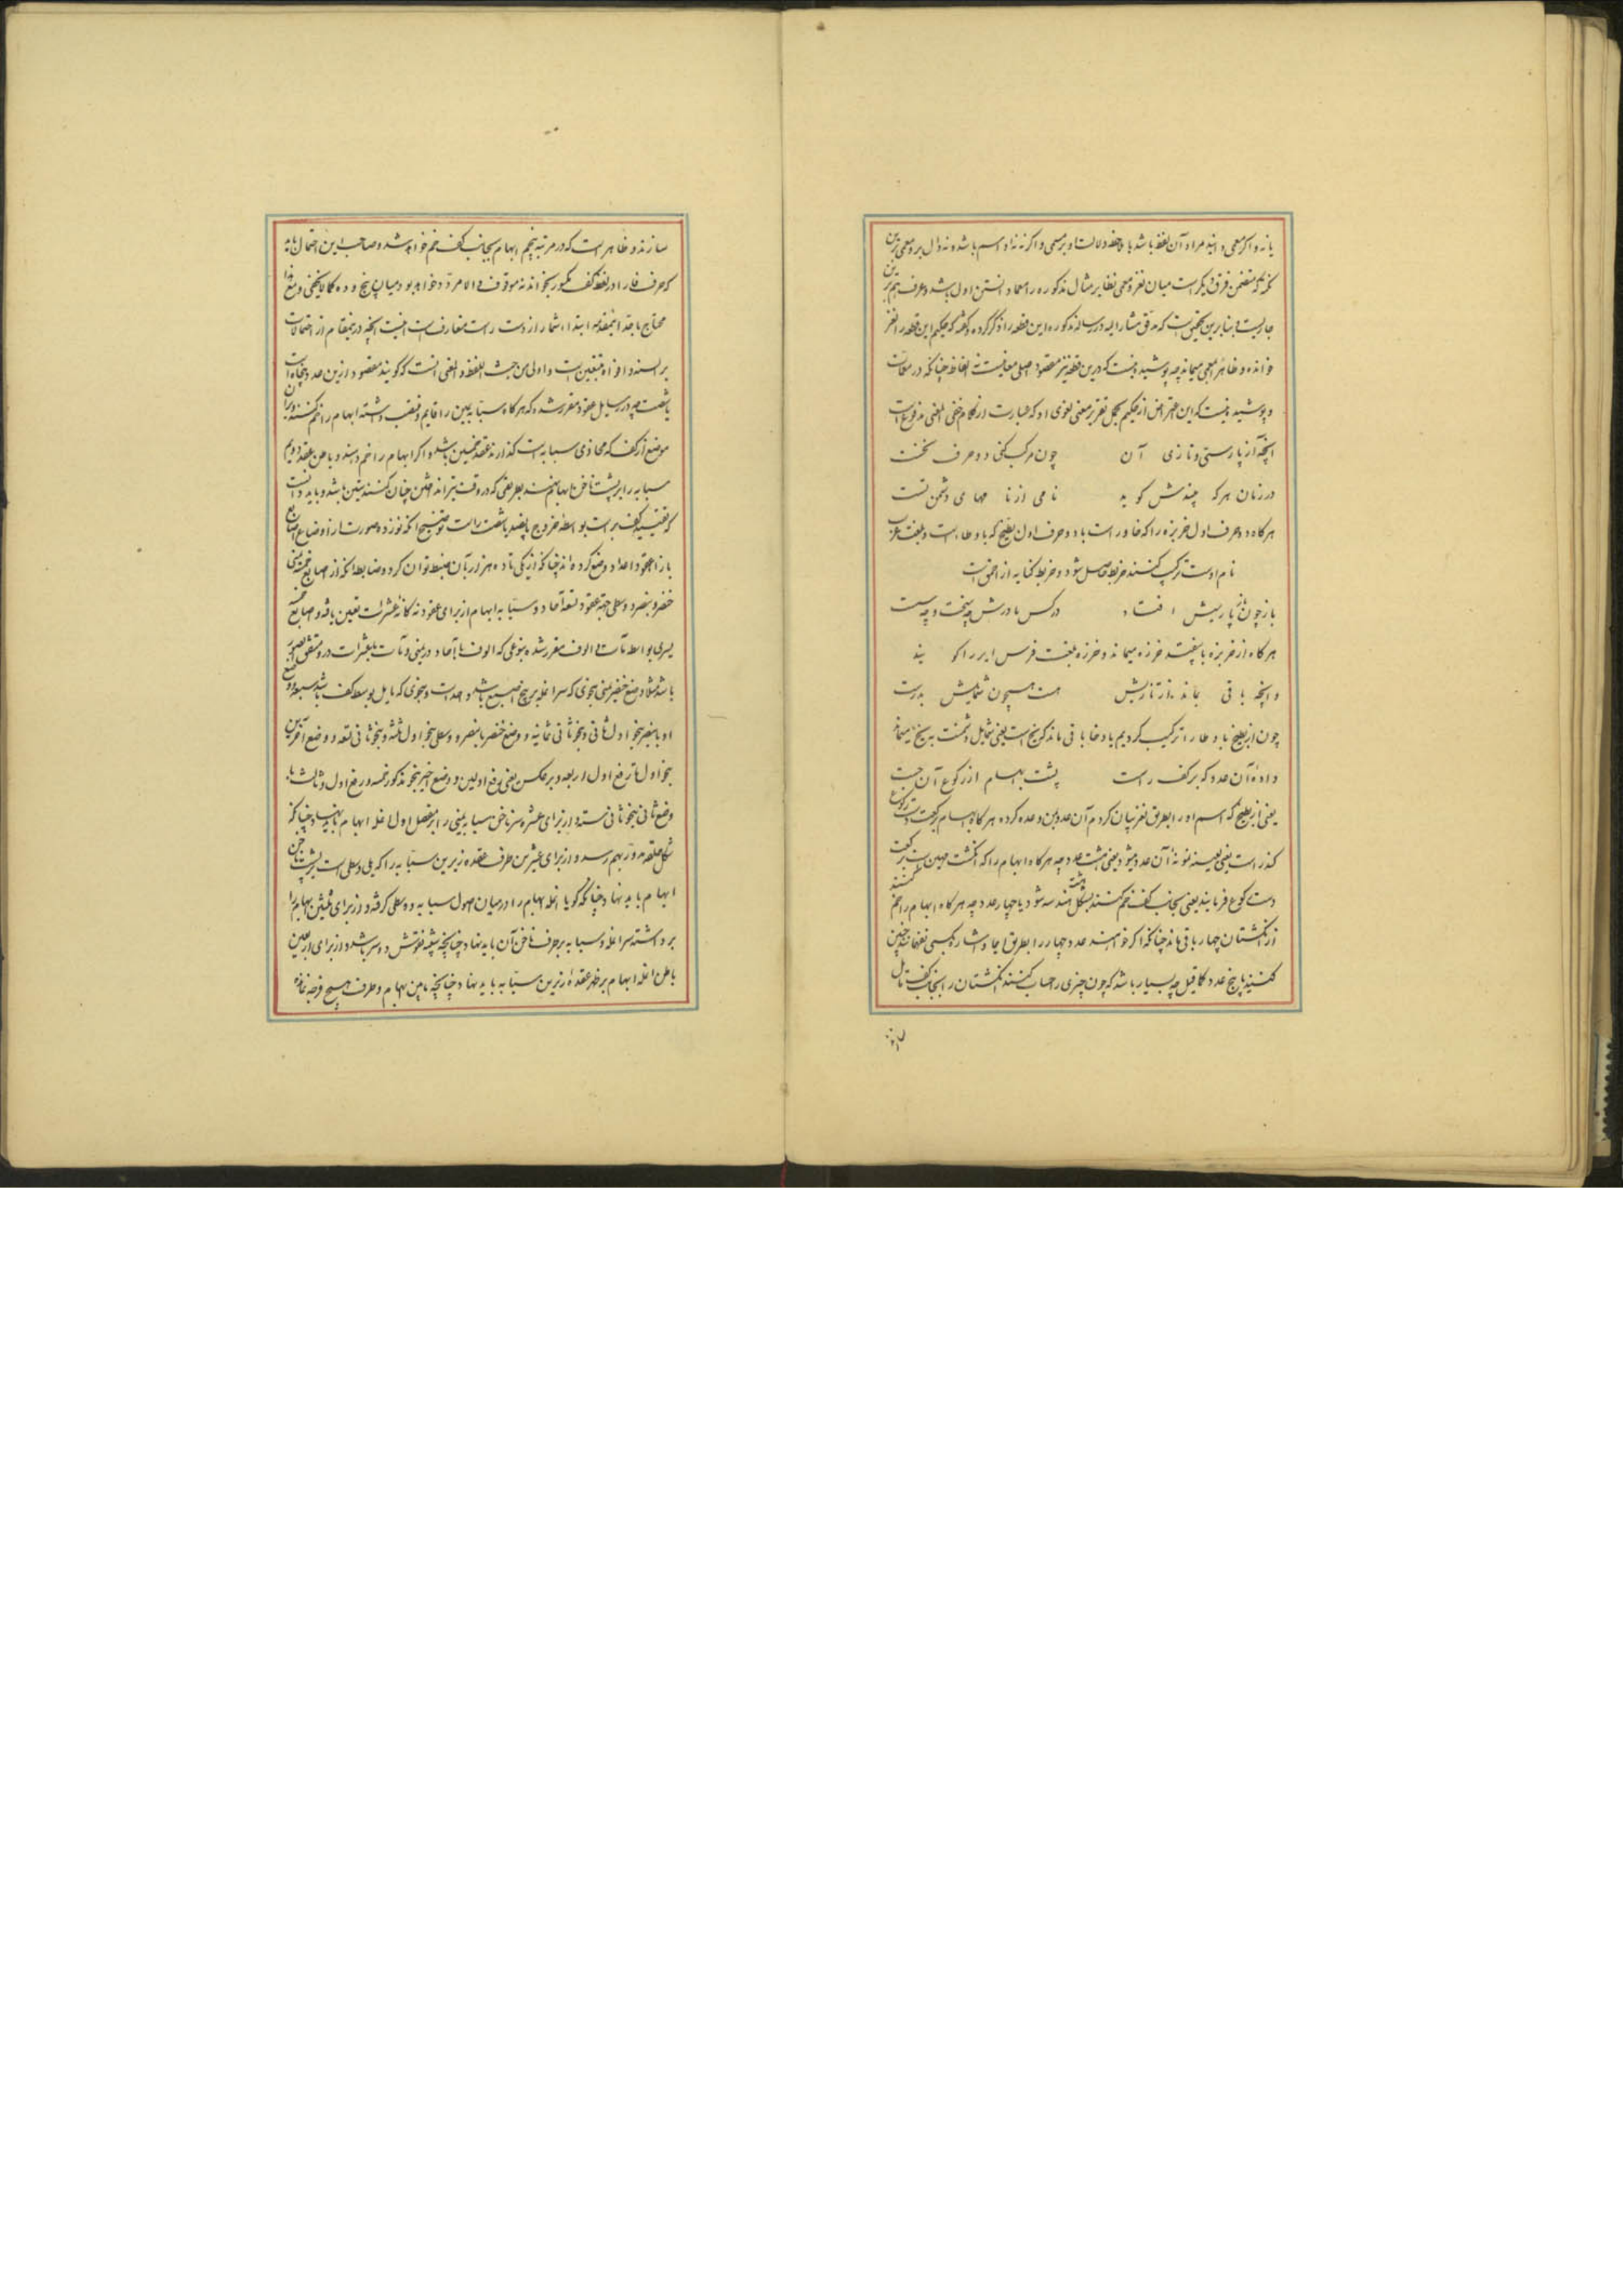 یا نه و اگر معمی دانید مراد آن لفظ باشد با ولالت او بر معمی و اگر نه نه او اسم باشد و نه دال بر و معمی
متضمن فرق دیگر است میان لغز و معمی نظایر مثال مذکوره را معما دانستن اول باشد و عرف هم برین
جاریست و بنا برین است که مشار الیه در رساله مذکوره این قطعه را ذکر کرده و گفته که حکیم این قطعه را لغز
خوانده و ظاهر معمی میماند چه پوشیده نیست که درین قطعه نیز مقصود اصلی نه الفاظ چنانکه در
و پوشیده نیست که این اعتراض از حکیم تقریر معنی لغوی او که عبارت از کلام خفی المعنی مدفوع است
آنچه آن پارسی و تازی آن چون مرکب کنی دو حرف نخست
در زمان هر که چندش گوید نامی از نامهای دشمن تست
هر گاه دو حرف اول خربزه را که خا و راست با دو حرف اول بطیخ که با و طاء است و بلغت عرب
نام اوست ترکیب کنند خربط حاصل شود و خربط کنایه از احمق است
باز چون پاریش افتاد در کس مادرش چه سخت و چه سست
هر گاه از خربزه با بیفتد خرزه میماند و خرزه بلغت فرس ایر را گویند
و آنچه باقی بماند از تازیش هست همچون شمایلش بدرست
چون از بطیخ با و طا را ترکیب کردیم یا و خا باقی ماند که یخ است یعنی شمایل دشمنت به یخ میماند
داده آن عدد که بر کف راست پشت ابهام از رکوع آن جست
یعنی از بطیخ که اسم او را بطریق لغز بیان کردم آن عدد من وعده کرده هر گاه ابهام رکعت دست رکوع
گذر است یعنی بعینه نمونه آن عدد میشود یعنی هشت عدد چه هر گاه ابهام را که انگشت مهین است بر کف
دست رکوع فرمایند یعنی بجانب کف خم کنند بشکل هندسه هشت شود یا چهار عدد چه هر گاه ابهام را خم کنند
از انگشتان چهار باقی ماند چنانکه اگر خواهند عدد چهار را بطریق ایما و اشاره بکسی بفهمانند چنین
کنند یا پنج عدد کما قیل چه بسیار باشد که چون چیزی را حساب کنند انگشتان را بجانب کف مایل
سازند و ظاهر است که در مرتبه پنجم ابهام بجانب کف خم خواهد شد و صاحب این احتمال باید
که حرف فا را در لفظ کف مکسور بخواند نه موقوف و الا مردد خواهد بود میان پنج و ده کما لا یخفی و نیز
محتاج باین مقدمه ابتداء شمار از دست راست متعارف است اینست آنچه درین مقام از احتمالات
بر السنه و افواه است و اولی من حیث اللفظ و المعنی آنست که گویند مقصود ازین عدد پنجاه است
یا شصت چه در رسایل عقود مقرر شده که هر گاه سبابه یمین را قایم و منتصب داشته ابهام را خم کنند و بر آن
موضع از کف که محاذی سبابه است گذارند عقد خمسین باشد و اگر ابهام را خم دهند و باطن عقد دویم
سبابه را بر پشت ناخن ابهام نهند بطریقی که در وقت تیر انداختن چنان کنند ستین باشد و باید دانست
که تقیید کف بر راست بواسطه خروج پانصد یا ششصد است توضیح آنکه نوزده صورت از اوضاع اصابع
بازاء عقود اعداد وضع کرده‌اند چنانکه از یکی تا ده هزار بآن ضبط توان کرد و ضابطه آنکه از اصابع خمسه یمنی
خنصر و بنصر و وسطی جهة عقود تسعه آحاد و سبابه ابهام از برای عقود نه گانه عشرات تعیین یافته و اصابع خمسه
یسری بواسطه مآت و الوف مقرر شده بنوعی که الوف با آحاد در یمنی و مآت با عشرات درو متفق الصور
باشد مثلا وضع خنصر یمنی بنحوی که سر انمله بر بیخ اصبع باشد واحد است و بنحوی که مایل بوسط کف باشد سبعه و وضع
او با بنصر بنحو اول ثانی و بنحو ثانی ثمانیه و وضع خنصر با بنصر و وسطی بنحو اول ثلثه و بنحو ثانی تسعه و وضع آخرین
بنحو اول با رفع اول اربعه و بر عکس یعنی رفع اولین و وضع اخیر بنحو مذکور خمسه و رفع اول و ثالث با
وضع ثانی بنحو ثانی سته و از برای عشره سر ناخن سبابه یمنی را بر مفصل اول انمله ابهام باید نهاد چنانکه
شکل حلقه مدور بهم رسد و از برای عشرین طرف عقده زیرین سبابه را که یلی وسطی است بر پشت ناخن
ابهام باید نهاد چنانکه گویا انمله ابهام را در میان اصول سبابه و وسطی گرفته و از برای ثلثین ابهام را
برداشته سر انمله سبابه بر حرف ناخن آن باید نهاد چنانچه بشبه قوس و وتر باشد و از برای اربعین
باطن انمله ابهام بر ظهر عقده زیرین سبابه باید نهاد چنانچه مابین ابهام و طرف هیچ فرجه نماند